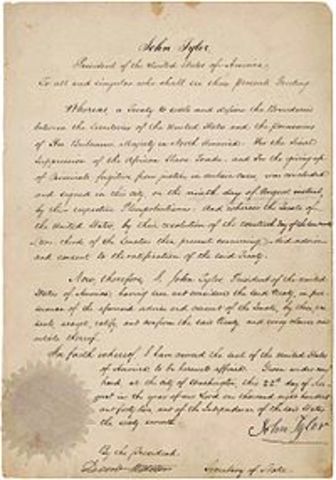 John Tyler
President of the United States of America,
To all and singular who shall see these Presents Greeting
Whereas, a Treaty to settle and define the Boundaries
between the Territories of the United States and the possessions
of Her Britannic Majesty in North America: For the final
Suppression of the African Slave Trade: and For the giving up
of Criminals fugitive from justice, in certain cases, was concluded
and signed in this city, on the ninth day of August instant,
by their respective Plenipotentiaries: And whereas the Senate of
the United States, by their resolution of the day of
two thirds of the Senators then present concurring, did advise
and consent to the ratification of the said Treaty:
Now, therefore, I, John Tyler President of the United
States of America, having seen and considered the said Treaty, do, in
of the aforesaid advice and consent of the Senate, by these
accept, ratify, and confirm the said Treaty and every clause and
article thereof.
In faith whereof, I have caused the seal of the United States
of America to be hereunto affixed. Given under my
hand at the City of Washington, this 22d day of
in the year of our Lord one thousand eight hundred
and forty two, and of the Independence of the United States,
the sixty seventh
John Tyler
By the President:
Secretary of State.